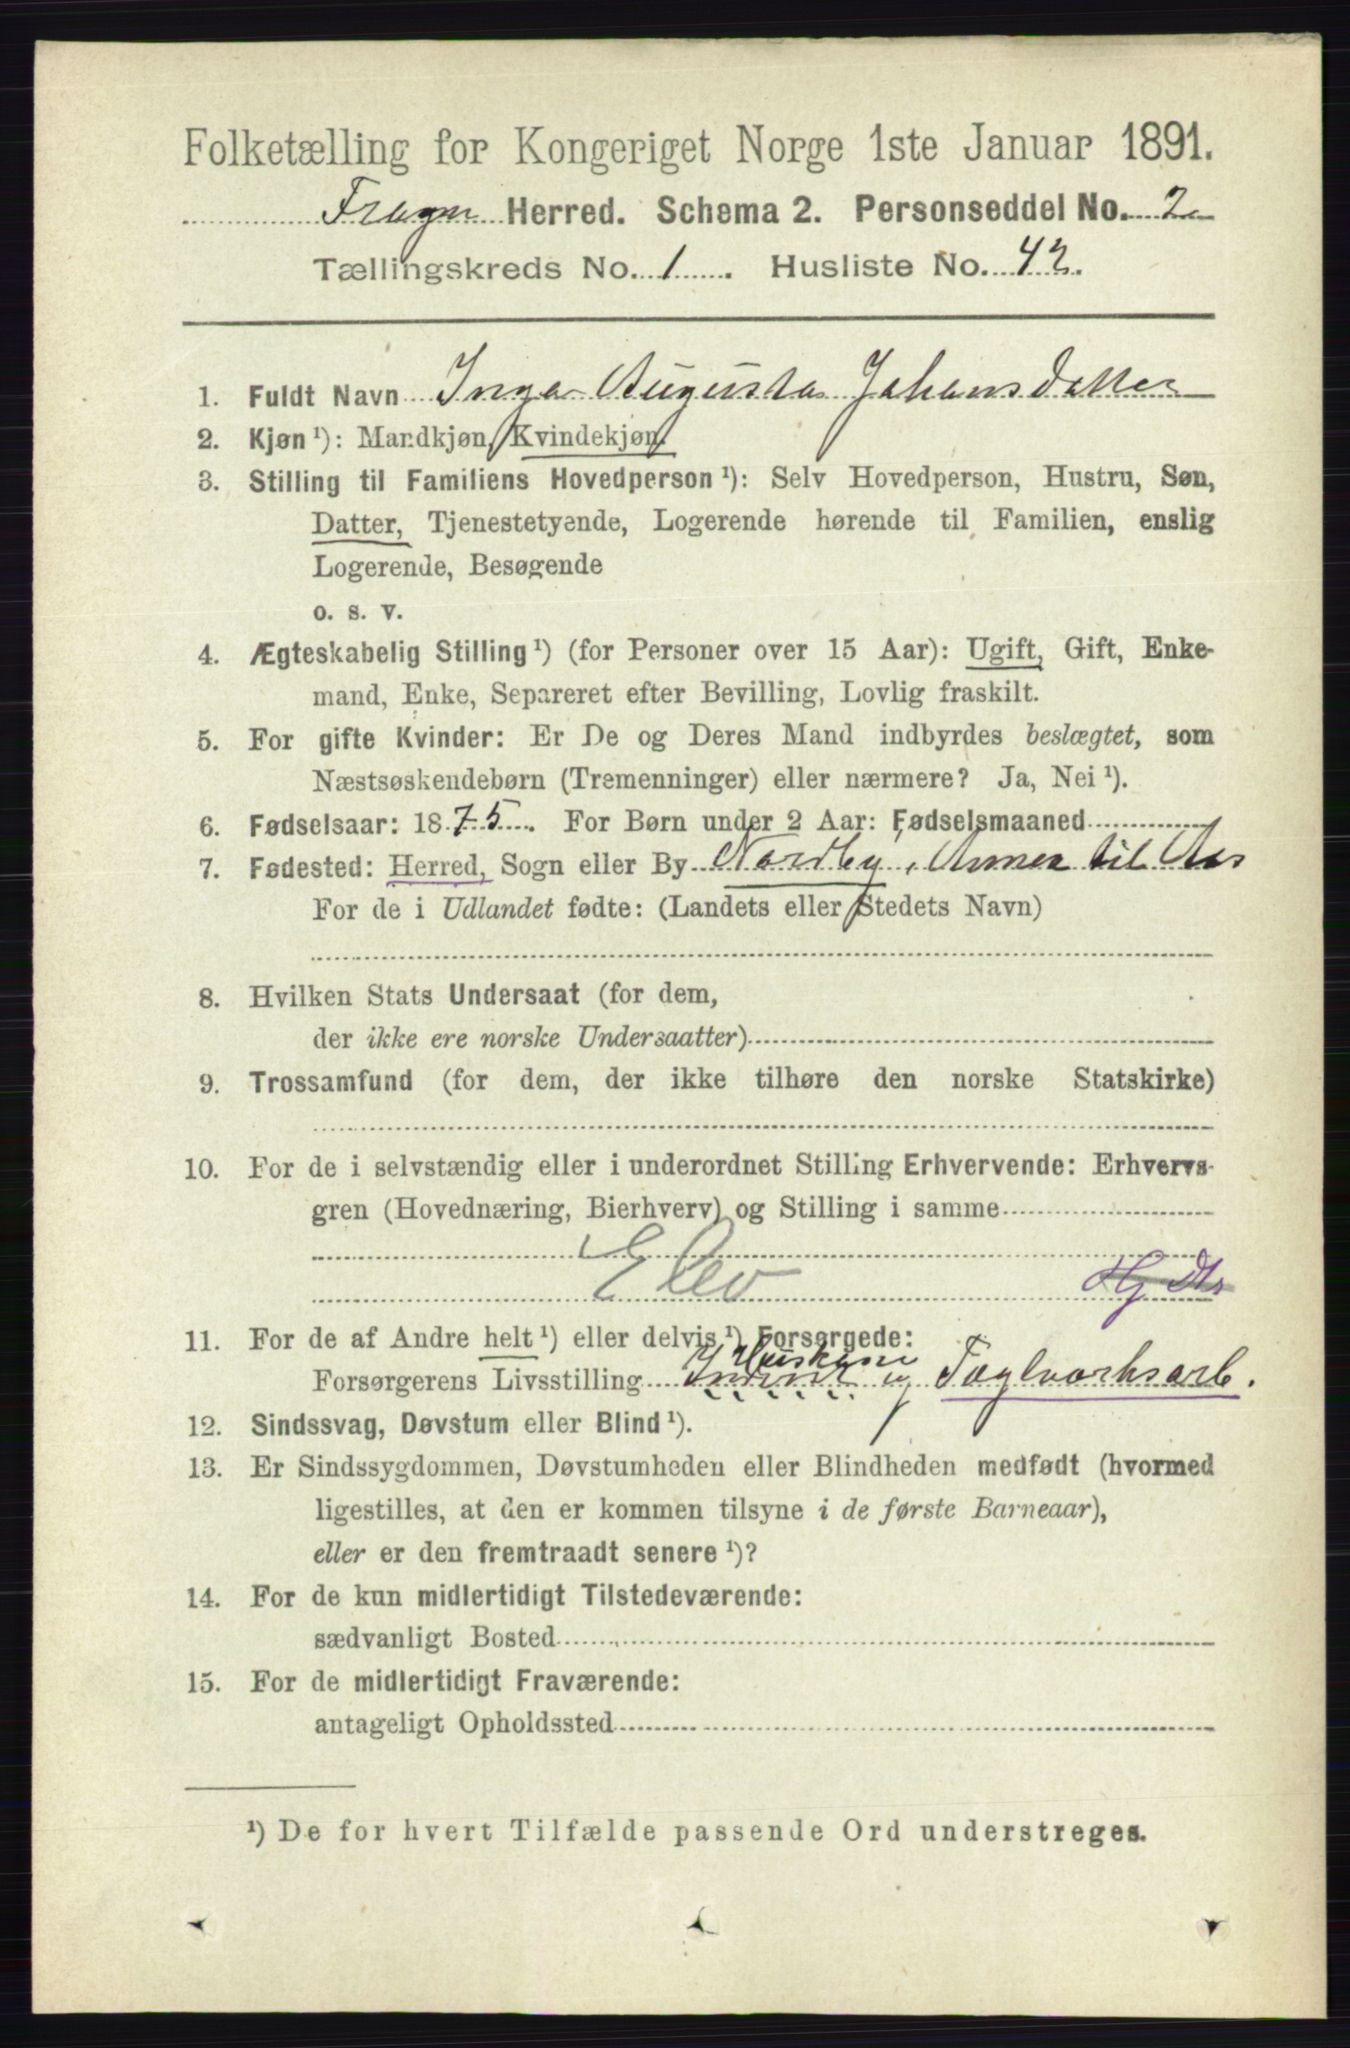 Folketælling for Kongeriget Norge 1ste Januar 1891.
Frogn Herred. Schema 2. Personseddel No. 2
Tællingskreds No. 1. Husliste No. 42.
1. Fuldt Navn Inga Augusta Johansdatter
2. Kjøn ¹): Mandkjøn, Kvindekjøn.
3. Stilling til Familiens Hovedperson ¹): Selv Hovedperson, Hustru, Søn,
Datter, Tjenestetyende, Logerende hørende til Familien, enslig
Logerende, Besøgende
o. s. v.
4. Ægteskabelig Stilling ¹) (for Personer over 15 Aar): Ugift, Gift, Enke-
mand, Enke, Separeret efter Bevilling, Lovlig fraskilt.
5. For gifte Kvinder: Er De og Deres Mand indbyrdes beslægtet, som
Næstsøskendebørn (Tremenninger) eller nærmere? Ja, Nei ¹).
6. Fødselsaar: 1875. For Børn under 2 Aar: Fødselsmaaned
7. Fødested: Herred, Sogn eller By Nordby, Annex til Aas
For de i Udlandet fødte: (Landets eller Stedets Navn)
8. Hvilken Stats Undersaat (for dem,
der ikke ere norske Undersaatter)
9. Trossamfund (for dem, der ikke tilhøre den norske Statskirke)
10. For de i selvstændig eller i underordnet Stilling Erhvervende: Erhvervs-
gren (Hovednæring, Bierhverv) og Stilling i samme
Elev Hj Dtr
11. For de af Andre helt ¹) eller delvis ¹) Forsørgede:
Forsørgerens Livsstilling og Teglværksarb.
12. Sindssvag, Døvstum eller Blind ¹).
13. Er Sindssygdommen, Døvstumheden eller Blindheden medfødt (hvormed
ligestilles, at den er kommen tilsyne i de første Barneaar),
eller er den fremtraadt senere ¹)?
14. For de kun midlertidigt Tilstedeværende:
sædvanligt Bosted
15. For de midlertidigt Fraværende:
antageligt Opholdssted
¹) De for hvert Tilfælde passende Ord understreges.